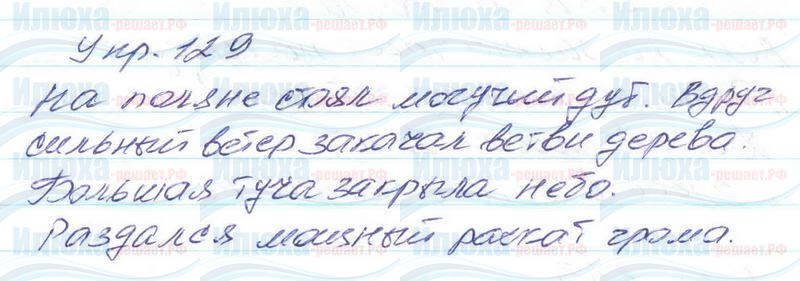 Упр. 129
На поляне стоял могучий дуб. Вдруг
сильный ветер закачал ветви дерева.
Большая туча закрыла небо.
Раздался мощный раскат грома.